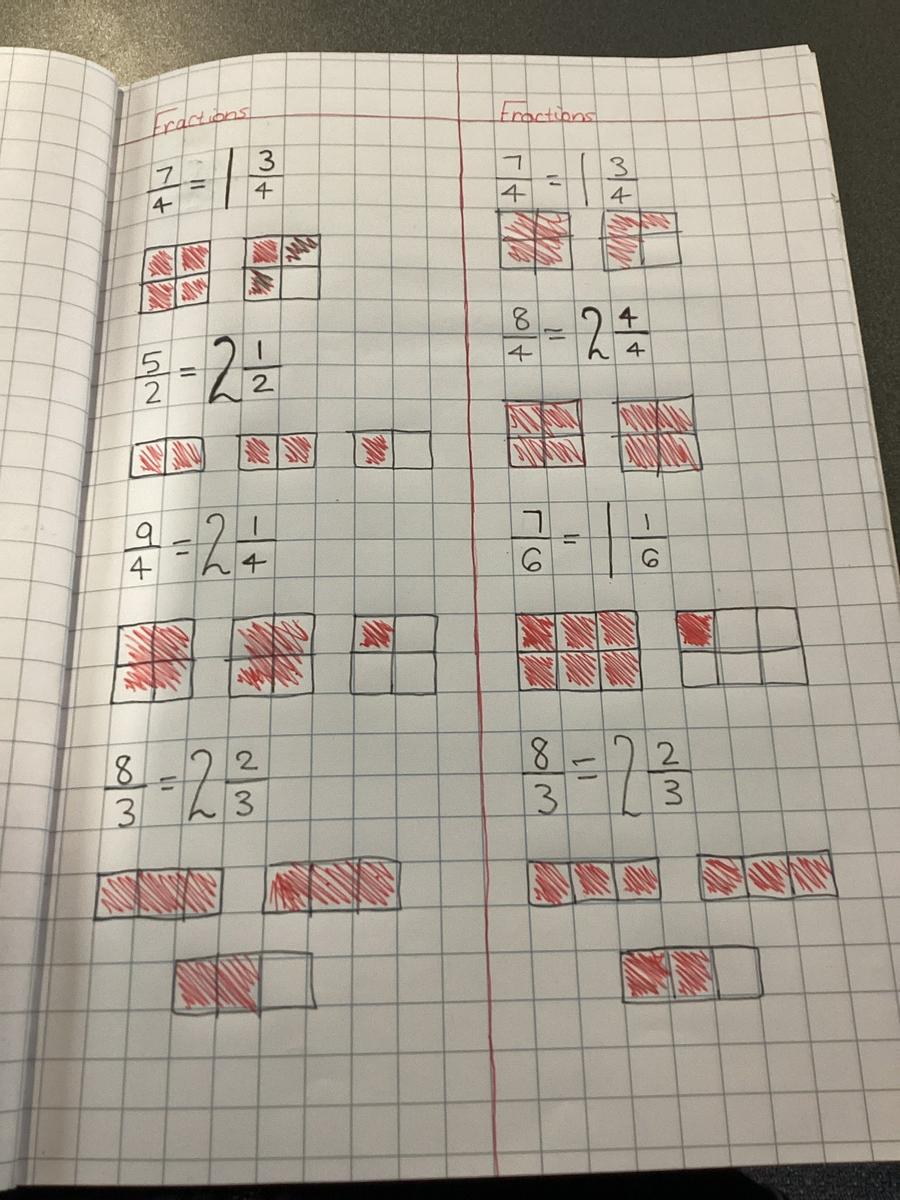 Fractions
7/4 = 1 3/4
5/2 = 2 1/2
9/4 = 2 1/4
8/3 = 2 2/3
Fractions
7/4 = 1 3/4
8/4 = 2 4/4
7/6 = 1 1/6
8/3 = 2 2/3